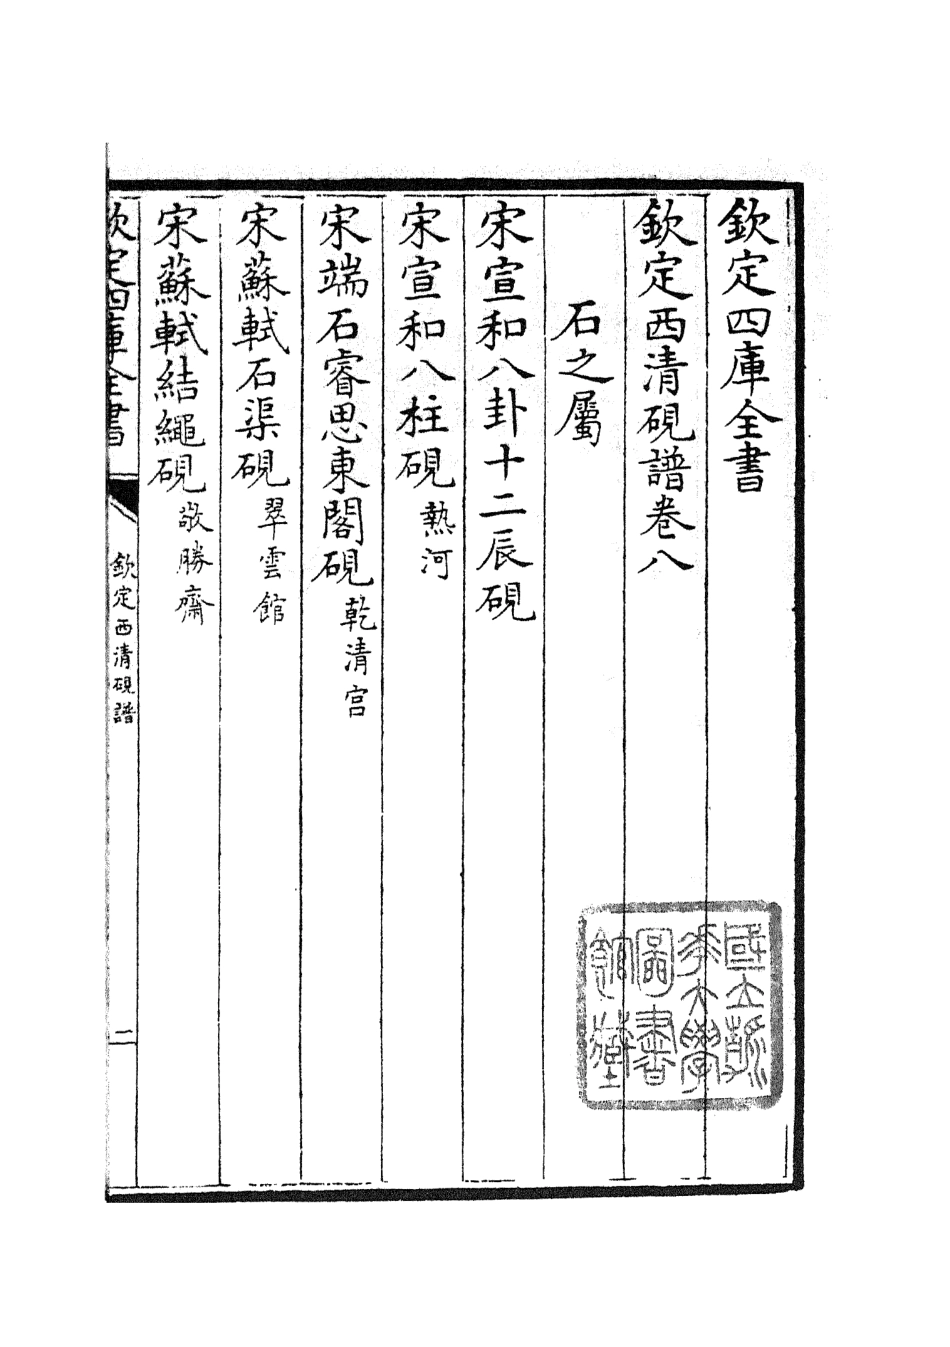 欽定四庫全書
欽定西清硯譜卷八
石之屬
宋宣和八卦十二辰硯
宋宣和八柱硯 熱河
宋端石睿思東閣硯 乾清宫
宋蘇軾石渠硯 翠雲館
宋蘇軾結繩硯 敬勝齋
欽定四庫全書
欽定西清硯譜
二
國立清華大學圖書館藏